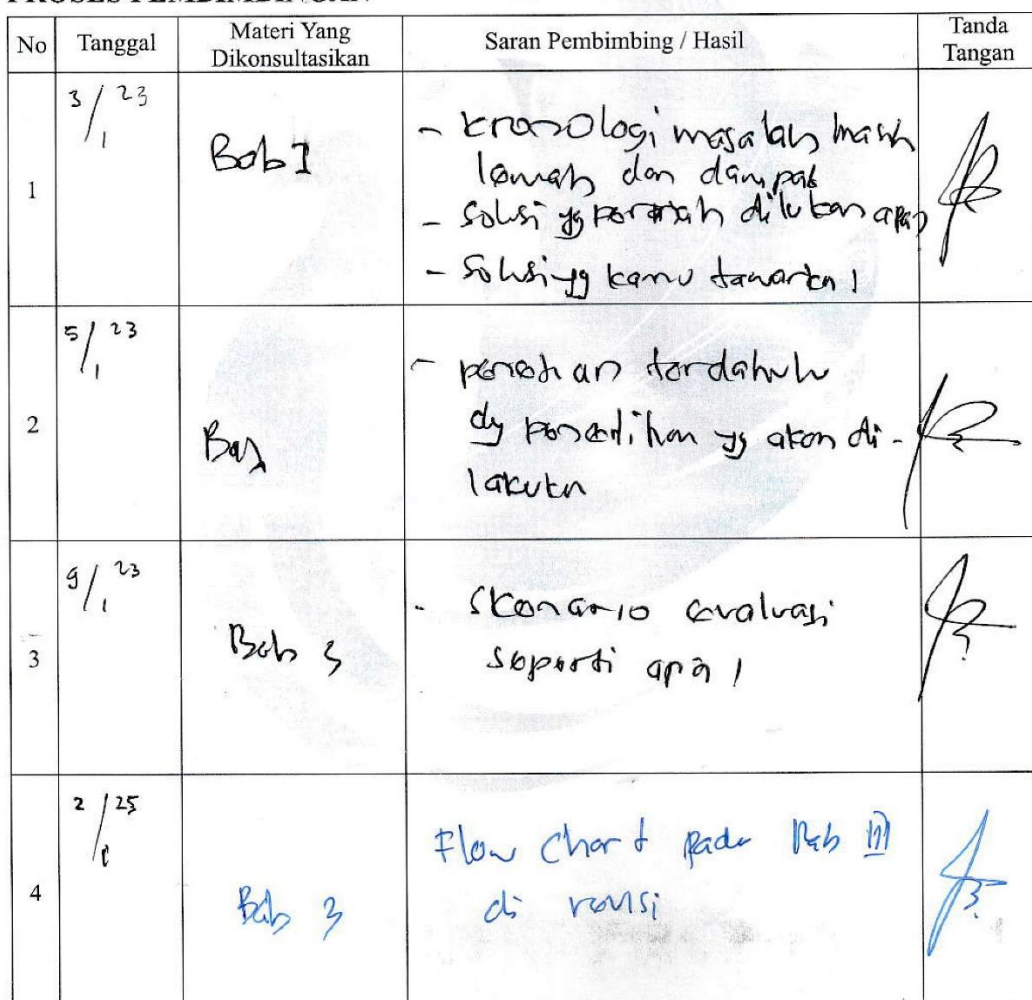 PROSES PEMBIMBINGAN
No Tanggal Materi Yang Dikonsultasikan Saran Pembimbing / Hasil Tanda Tangan
1
3/1 23
Bab I
- kronologi masalah masih
lemah dan dampak
- solusi yg pernah dilakukan apa
- solusi yg kamu tawarkan !
2
5/1 23
- penelitian terdahulu
dg penelitian yg akan di-
lakukan
3
9/1 23
Bab 3
- Skenario evaluasi
seperti apa !
4
2/ 25
Bab 3
Flow Chart pada Bab III
di revisi